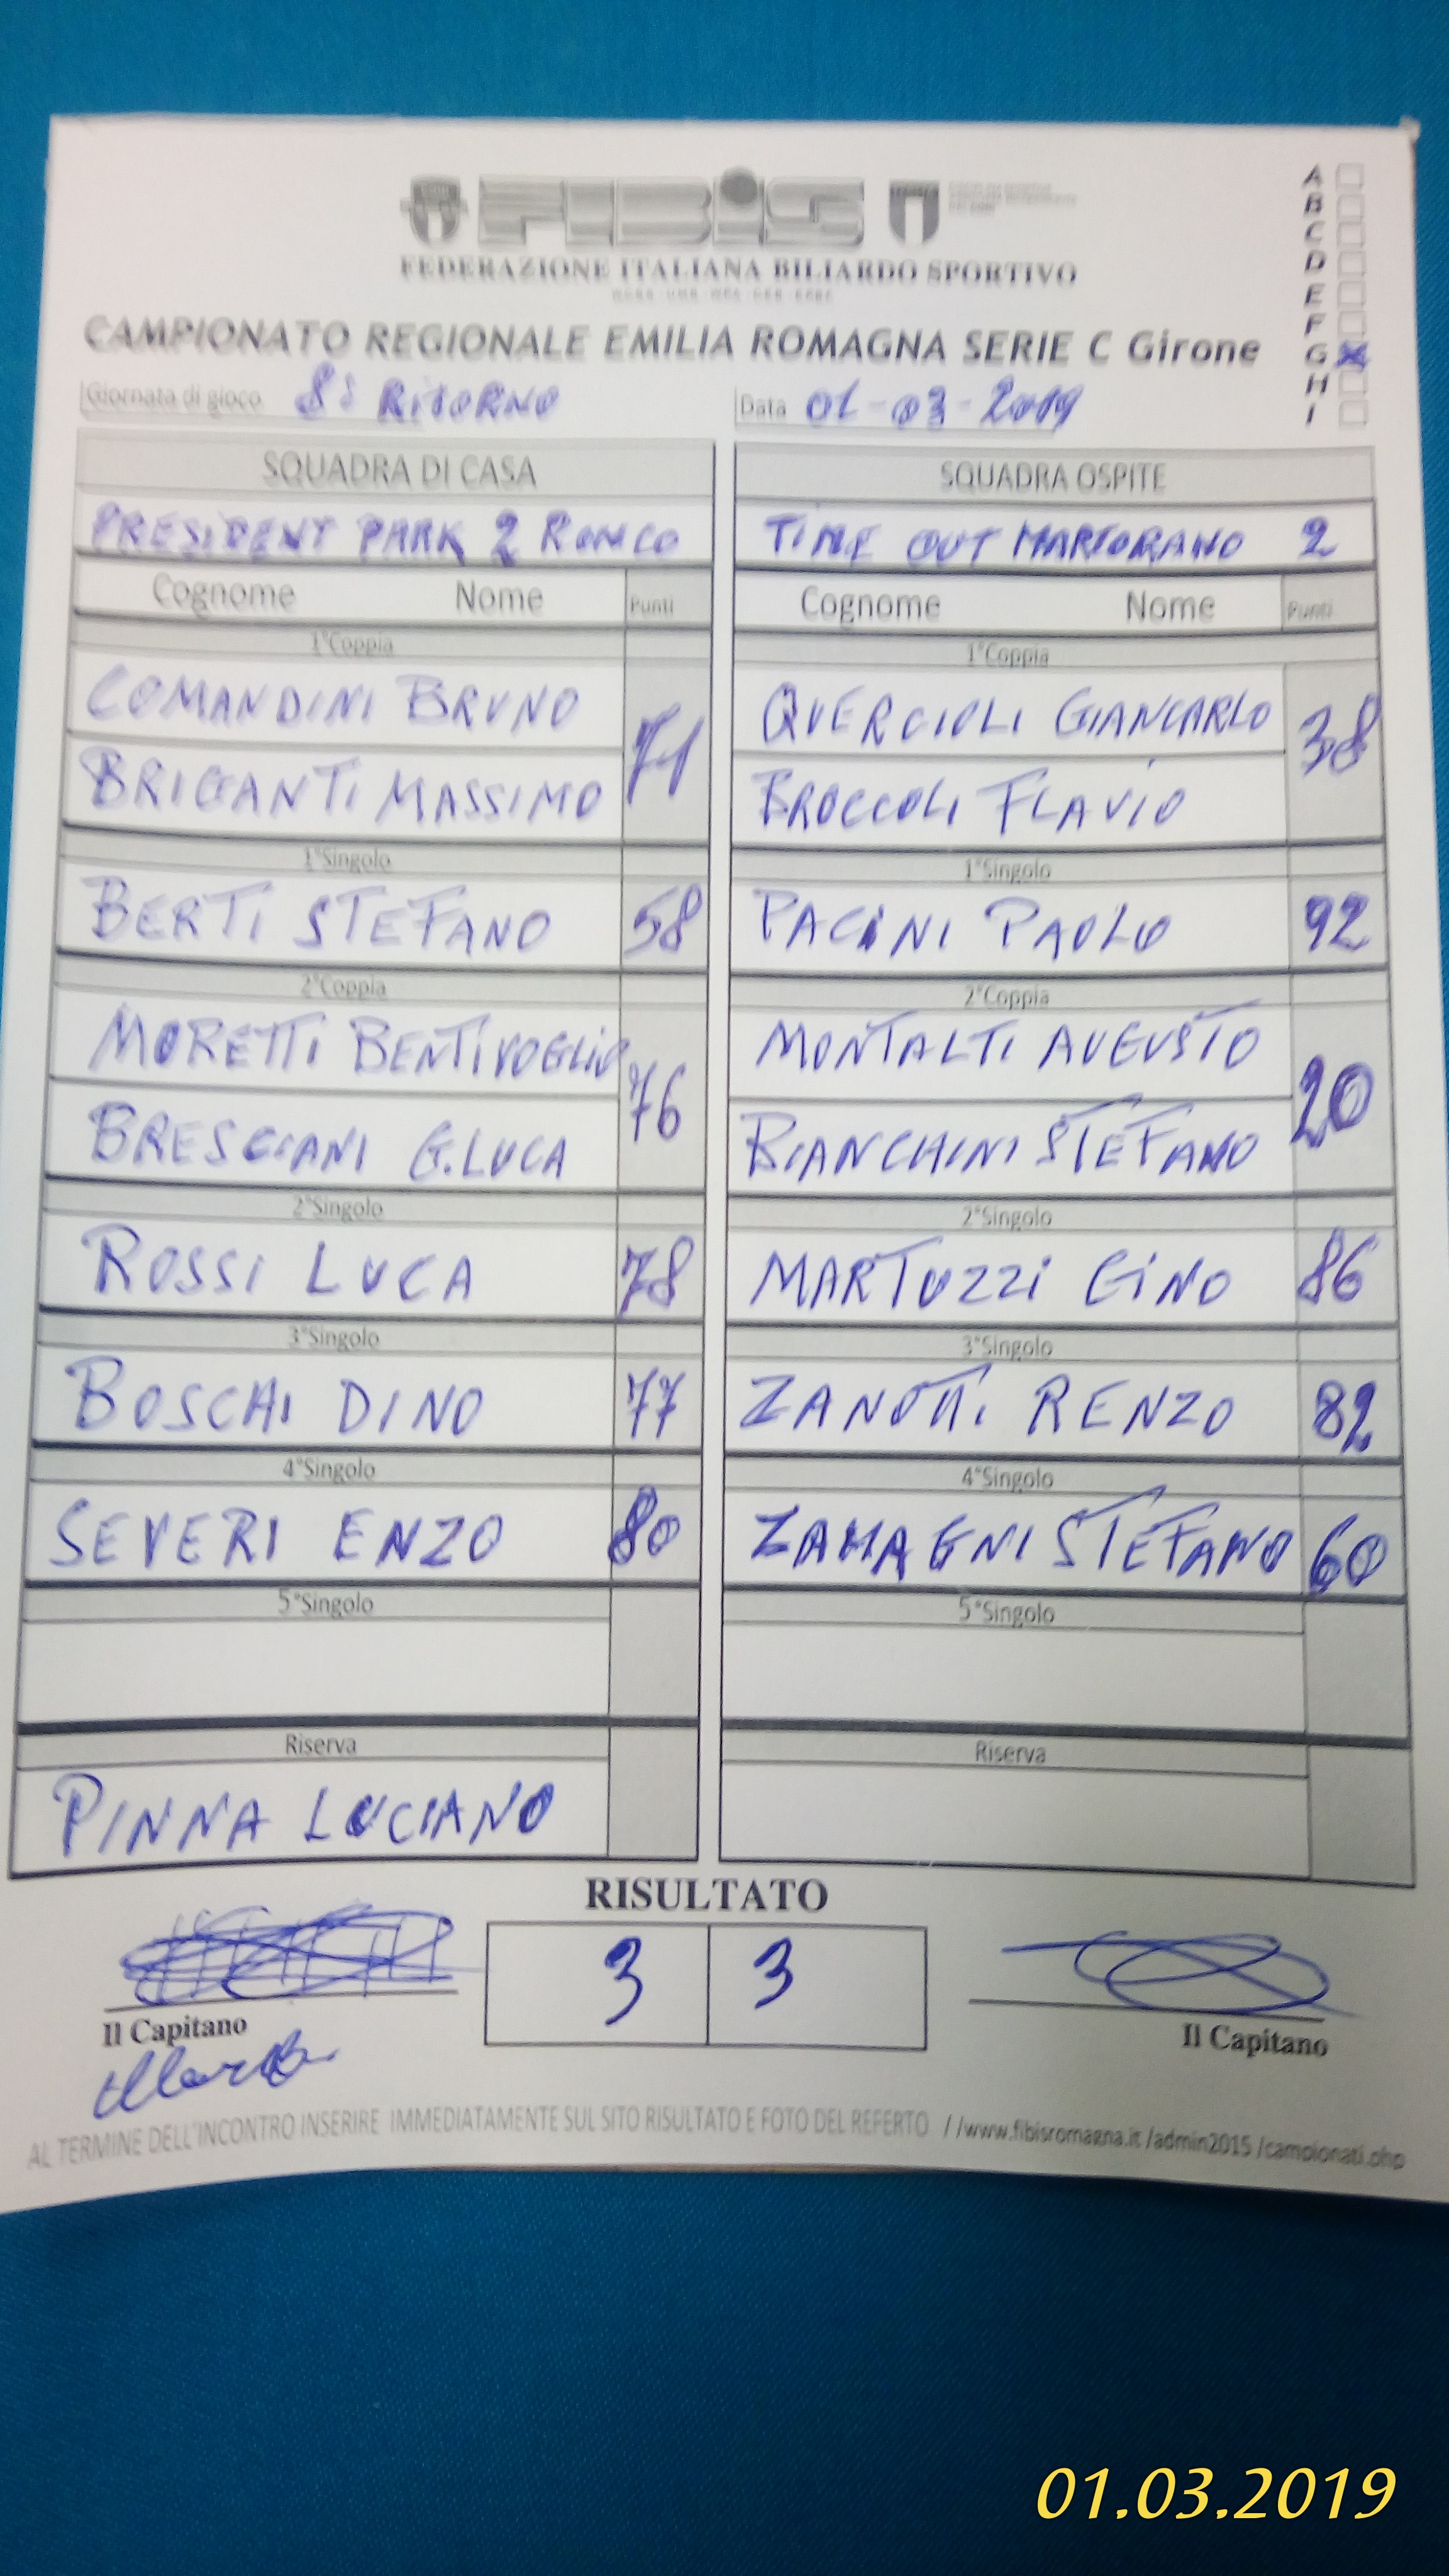 FIBIS
FEDERAZIONE ITALIANA BILIARDO SPORTIVO
CAMPIONATO REGIONALE EMILIA ROMAGNA SERIE C Girone
A
B
C
D
E
F
G X
H
I
Giornata di gioco 8ª RITORNO
Data 01-03-2019
SQUADRA DI CASA
SQUADRA OSPITE
PRESIDENT PARK 2 RONCO
TIME OUT MARTORANO 2
Cognome Nome Punti
Cognome Nome Punti
1°Coppia
1°Coppia
COMANDINI BRUNO
BRIGANTI MASSIMO
71
QUERCIOLI GIANCARLO
BROCCOLI FLAVIO
38
1°Singolo
1°Singolo
BERTI STEFANO 58
PACINI PAOLO 92
2°Coppia
2°Coppia
MORETTI BENTIVOGLIO
BRESCIANI G.LUCA
76
MONTALTI AUGUSTO
BIANCHINI STEFANO
20
2°Singolo
2°Singolo
ROSSI LUCA 78
MARTUZZI GINO 86
3°Singolo
3°Singolo
BOSCHI DINO 77
ZANOTTI RENZO 82
4°Singolo
4°Singolo
SEVERI ENZO 80
ZAMAGNI STEFANO 60
5°Singolo
5°Singolo
Riserva
Riserva
PINNA LUCIANO
RISULTATO
3 3
Il Capitano
Il Capitano
AL TERMINE DELL'INCONTRO INSERIRE IMMEDIATAMENTE SUL SITO RISULTATO E FOTO DEL REFERTO //www.fibisromagna.it /admin2015 /campionati.php
01.03.2019